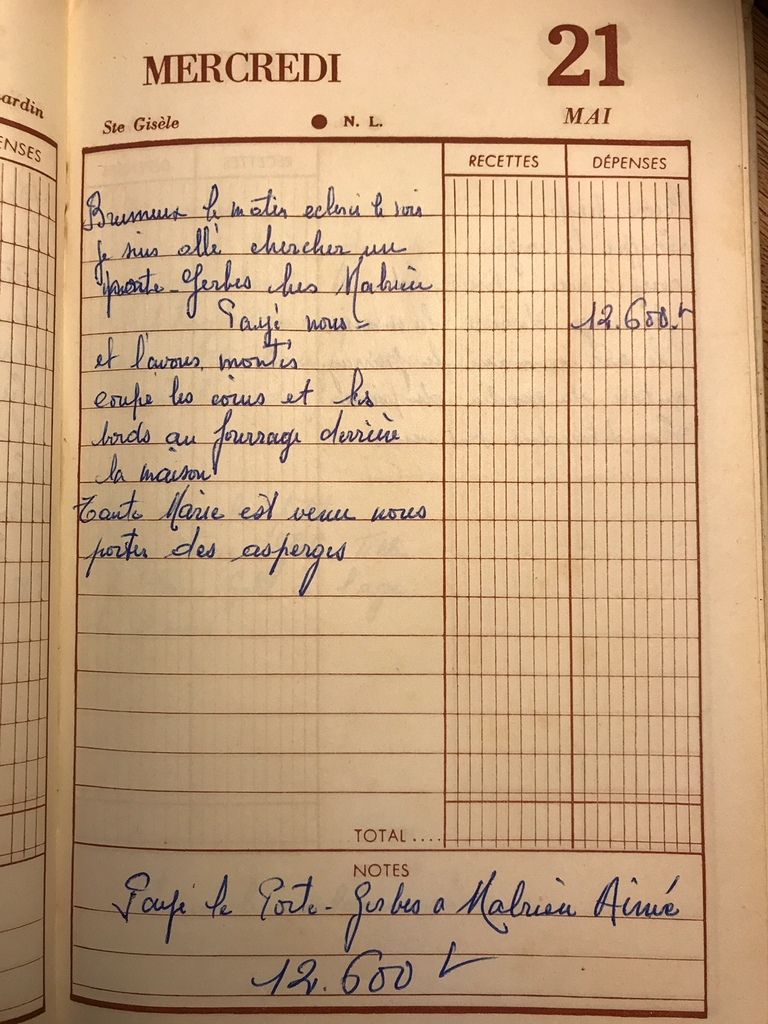 ardin
ENSES
MERCREDI
21
Ste Gisèle
N. L.
MAI
RECETTES
DÉPENSES
Brumeux le matin eclerci le soir
je suis allé chercher un
porte-Gerbes ches Malrieu
Payé nous = 12.600 F
et l'avons montés
coupé les coins et les
bords au fourrage derrière
la maison
Tante Marie est venu nous
porter des asperges
TOTAL ....
NOTES
Payé le Porte-Gerbes a Malrieu Aimé
12.600 F